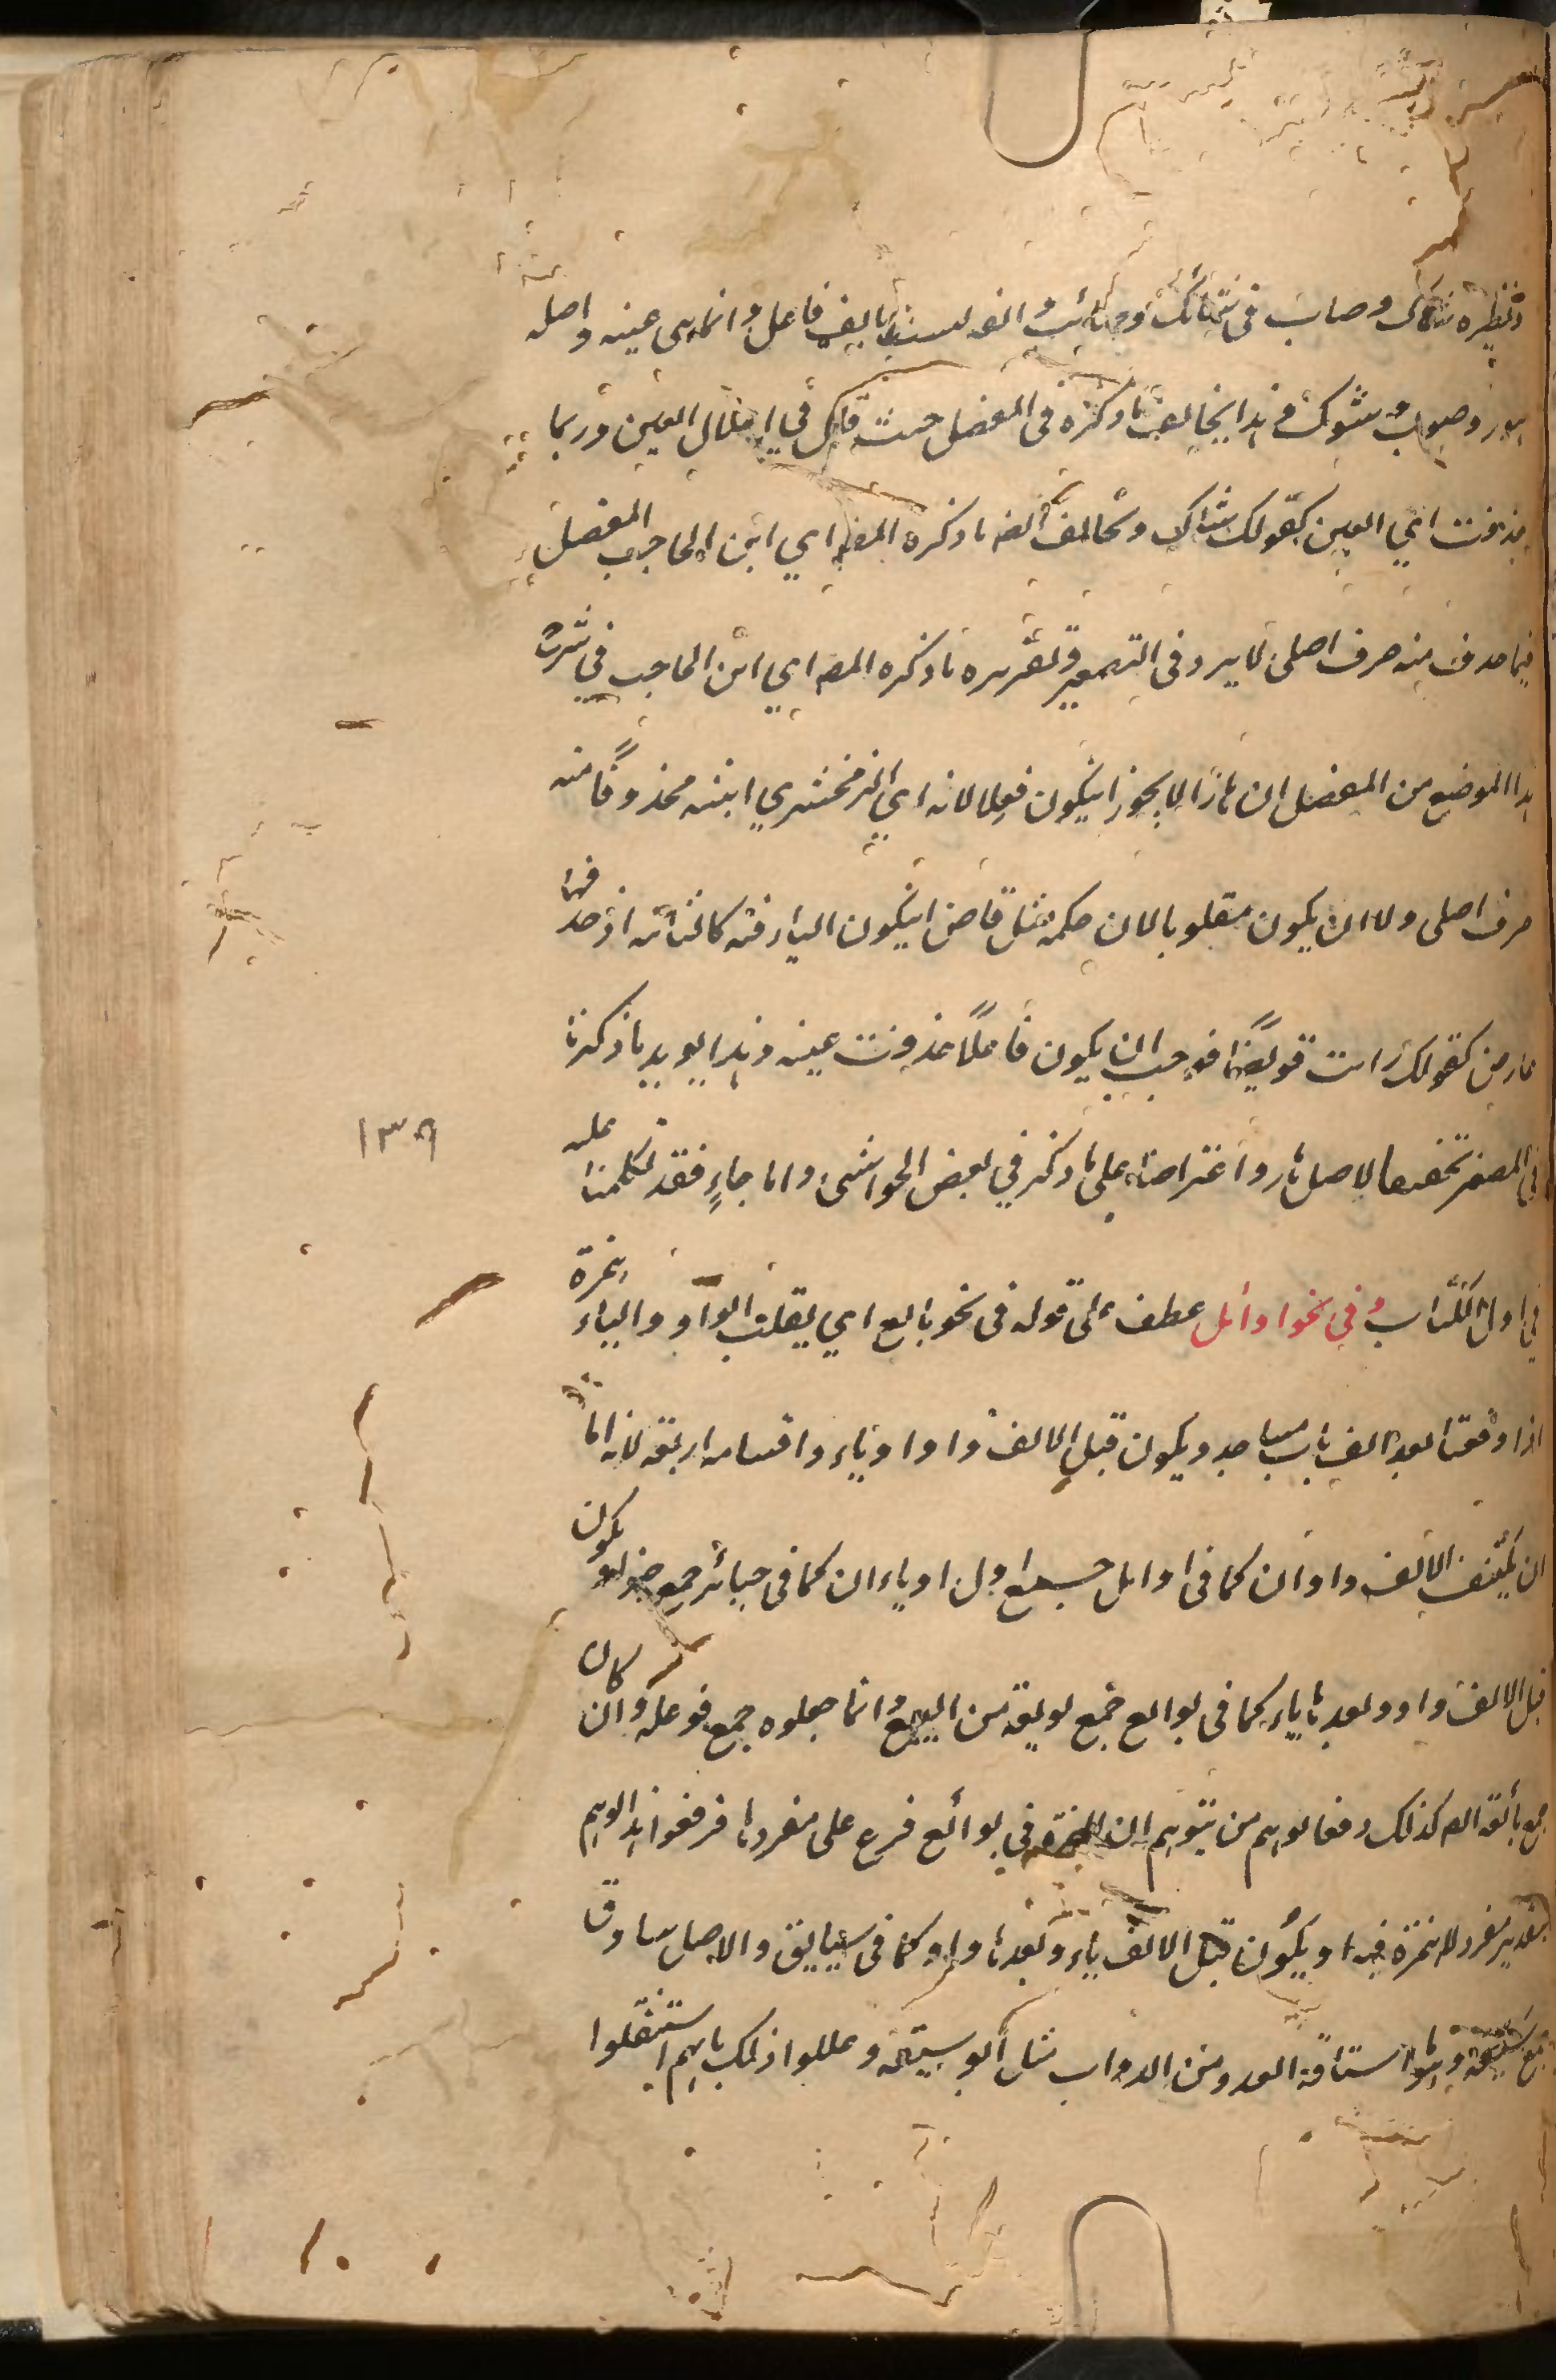 ونظيره شاك وصات في شائك وصائت والفه ليست بالف فاعل وانما هي عينه واصله
هور وصوت وشوك وهذا يخالف ما ذكره في المفصل حيث قال في اعلال العين وربما
حذفت اي العين كقولك شاك ويخالف ايضا ما ذكره المص اي ابن الحاجب المفصل
فيما حذف منه حرف اصلي لا يرد في التصغير وتقريره ما ذكره المص اي ابن الحاجب في شرح
هذا الموضع من المفصل ان هارًا لا يجوز ان يكون فعلا لانه اي الزمخشري اثبته محذوفًا منه
حرف اصلي ولا ان يكون مقلوبا لان حكمه مثل قاض ان يكون الياء فيه كالثابتة اذ حذفها
عارض كقولك رايت قويضيًا فوجب ان يكون فاعلًا حذفت عينه وهذا يويد ما ذكرنا
في المصغر تحقيقا لاصل هار واعتراضنا على ما ذكر في بعض الحواشي واما جاءٍ فقد تكلمنا عليه
في اول الكتاب وفي نحو اوائل عطف على قوله في نحو بائع اي يقلب الواو والياء همزة
اذا وقعتا بعد الف باب مساجد ويكون قبل الالف واو او ياء واقسامه اربعة لانه اما
ان يكتنف الالف واوان كما في اوائل جمع اول او ياءان كما في خيائر جمع خير او يكون
قبل الالف واو وبعدها ياء كما في بوائع جمع بويعة من البيع وانما جعلوه جمع فوعلة وان كان
جمع بائعة ايضا كذلك دفعا لوهم من يتوهم ان الهمزة في بوائع فرع على مفردها فرفعوا هذا الوهم
بتقدير مفرد لا همزة فيه او يكون قبل الالف ياء وبعدها واو كما في سيايق والاصل سياوق
جمع سيقة وهو ما استاقه العدو من الدواب مثل الوسيقة وعللوا ذلك بانهم استثقلوا
١٣٩